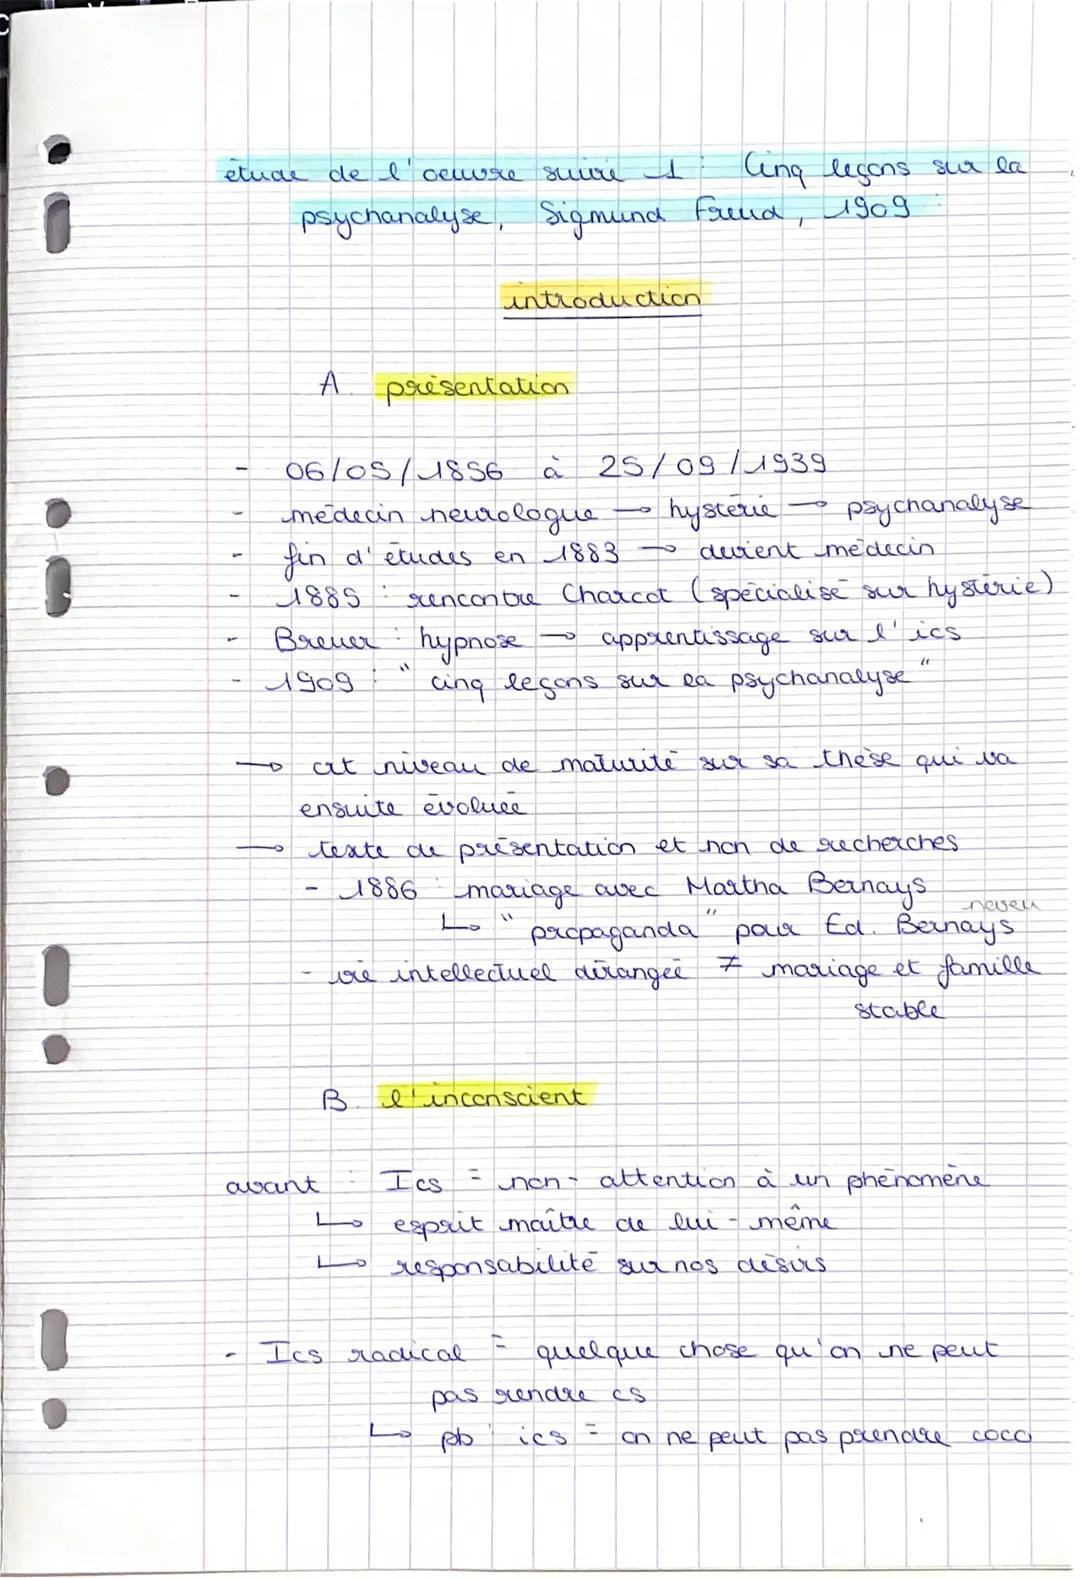 étude de l'oeuvre suivie 1 : Cinq leçons sur la
psychanalyse, Sigmund Freud, 1909 :
introduction
A. présentation
- 06/05/1856 à 25/09/1939
- médecin neurologue → hystérie → psychanalyse
- fin d'études en 1883 → devient médecin
- 1885 : rencontre Charcot (spécialisé sur hystérie)
- Breuer : hypnose → apprentissage sur l'ics
- 1909 : "cinq leçons sur la psychanalyse"
→ niveau de maturité sur sa thèse qui va
ensuite évoluée
→ texte de présentation et non de recherches
- 1886 : mariage avec Martha Bernays
neveu
↳ "propaganda" pour Ed. Bernays
- vie intellectuel dérangée ≠ mariage et famille
stable
B. l'inconscient
avant : Ics = non-attention à un phénomène
↳ esprit maître de lui-même
↳ responsabilité sur nos désirs
- Ics radical = quelque chose qu'on ne peut
pas rendre cs
↳ pb : ics = on ne peut pas prendre